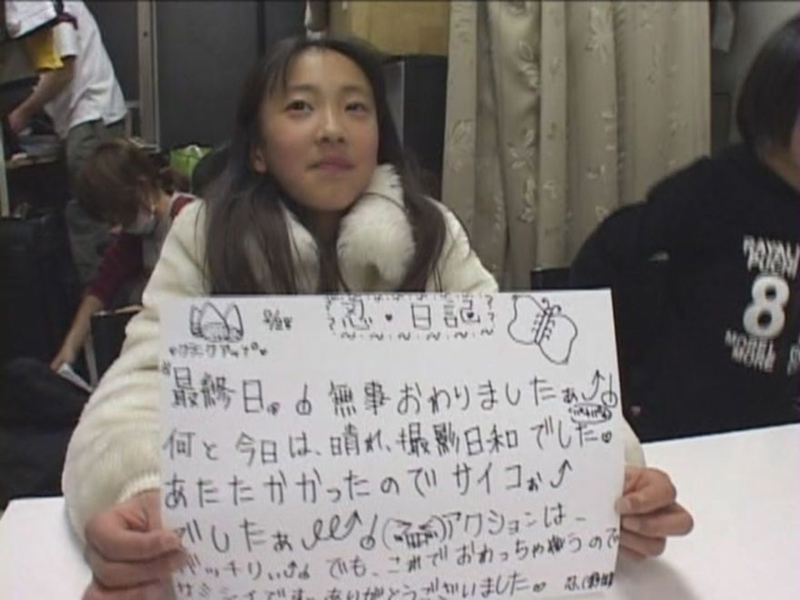 忍・日記
クランクアップ
最終日。無事おわりましたぁ
何と今日は、晴れ、撮影日和でした。
あたたかかったのでサイコぉ
でしたぁ アクションは、
バッチリぃ でも、これでおわっちゃうので
サミシイです。ありがとうございました。
8
MORE